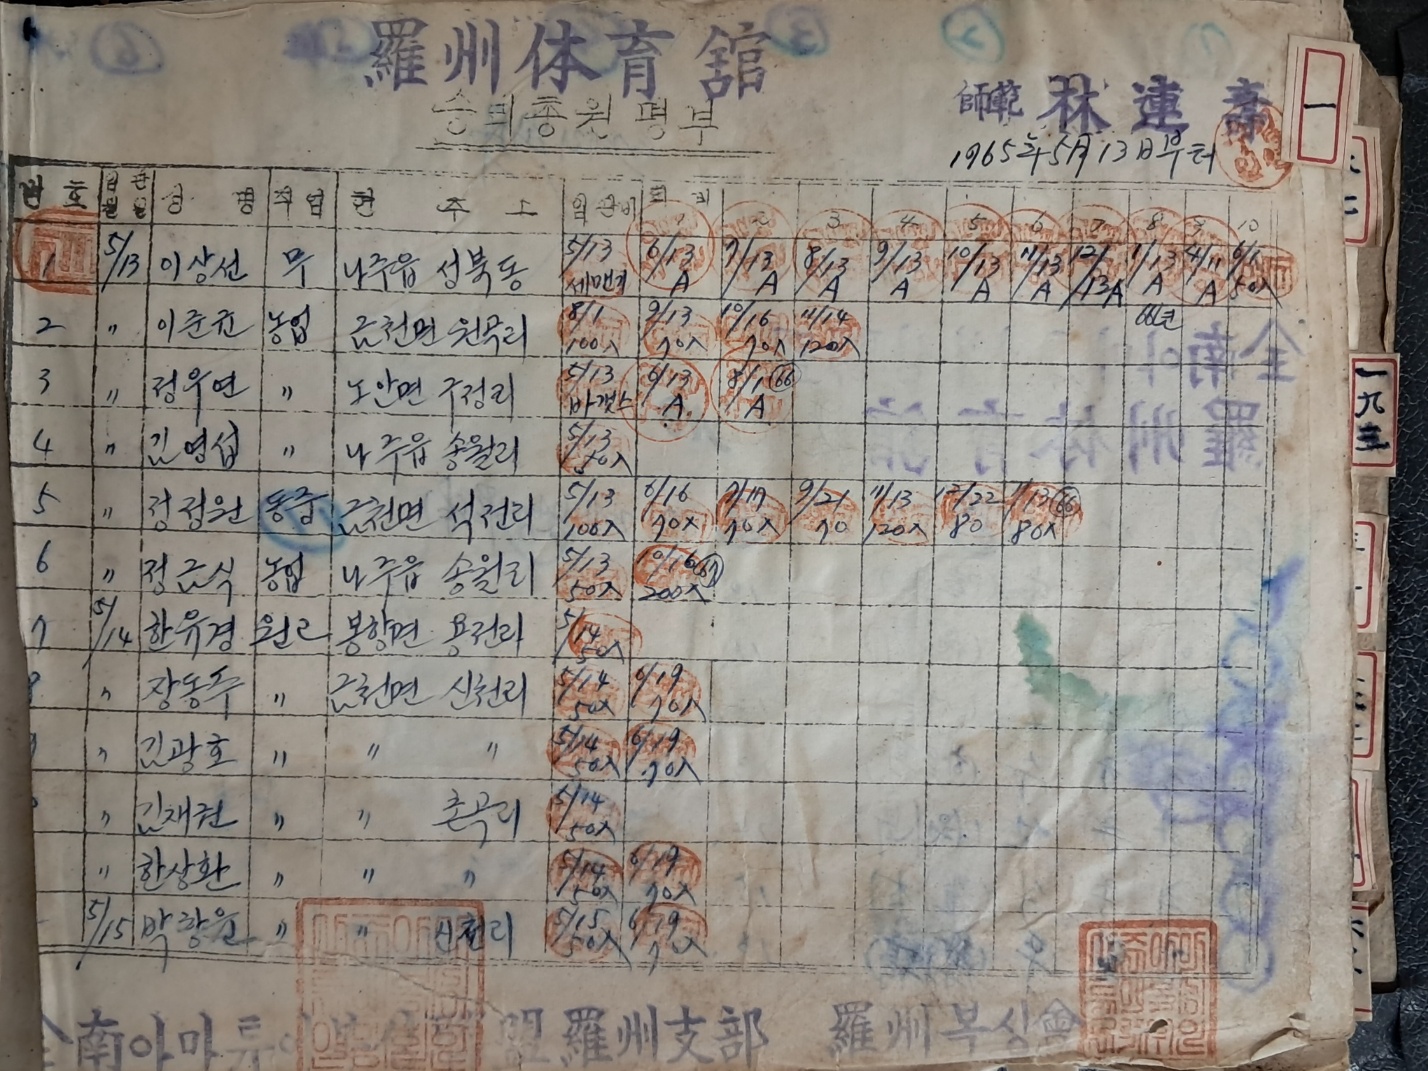 羅州体育舘
승리종원명부
師範 林連壽
1965年5月13日부터
번호 입관월일 성명 직업 현주소 입관비 회비 1 2 3 4 5 6 7 8 9 10
1 5/13 이상선 무 나주읍 성북동 5/13 세멘지 6/13 A 7/13 A 8/13 A 9/13 A 10/13 A 11/13 A 12/13 A 1/13 A 4/11 A 6/1 50入
66년
2 〃 이준권 농업 금천면 원곡리 8/1 100入 9/13 70入 10/16 70入 11/14 120入
3 〃 정우연 〃 노안면 구정리 5/13 마갯스 6/13 A 8/1 66 A
4 〃 김영섭 〃 나주읍 송월리 5/13 50入
5 〃 정정원 동중 금천면 석전리 5/13 100入 6/16 70入 7/17 70入 9/21 70 11/13 120入 12/22 80 1/13 66 80入
6 〃 정금식 농업 나주읍 송월리 5/13 50入 10/16 200入
7 5/14 한유경 원예 봉황면 용전리 5/14 50入
〃 장동주 〃 금천면 신천리 5/14 50入 6/19 70入
〃 김광호 〃 〃 〃 5/14 50入 6/19 70入
〃 김재권 〃 〃 촌곡리 5/14 50入
〃 한상환 〃 〃 〃 5/14 50入 6/19 70入
5/15 박항원 〃 〃 신천리 5/15 50入 6/19
全南아마튜어 盟羅州支部 羅州복싱會
一
一九五